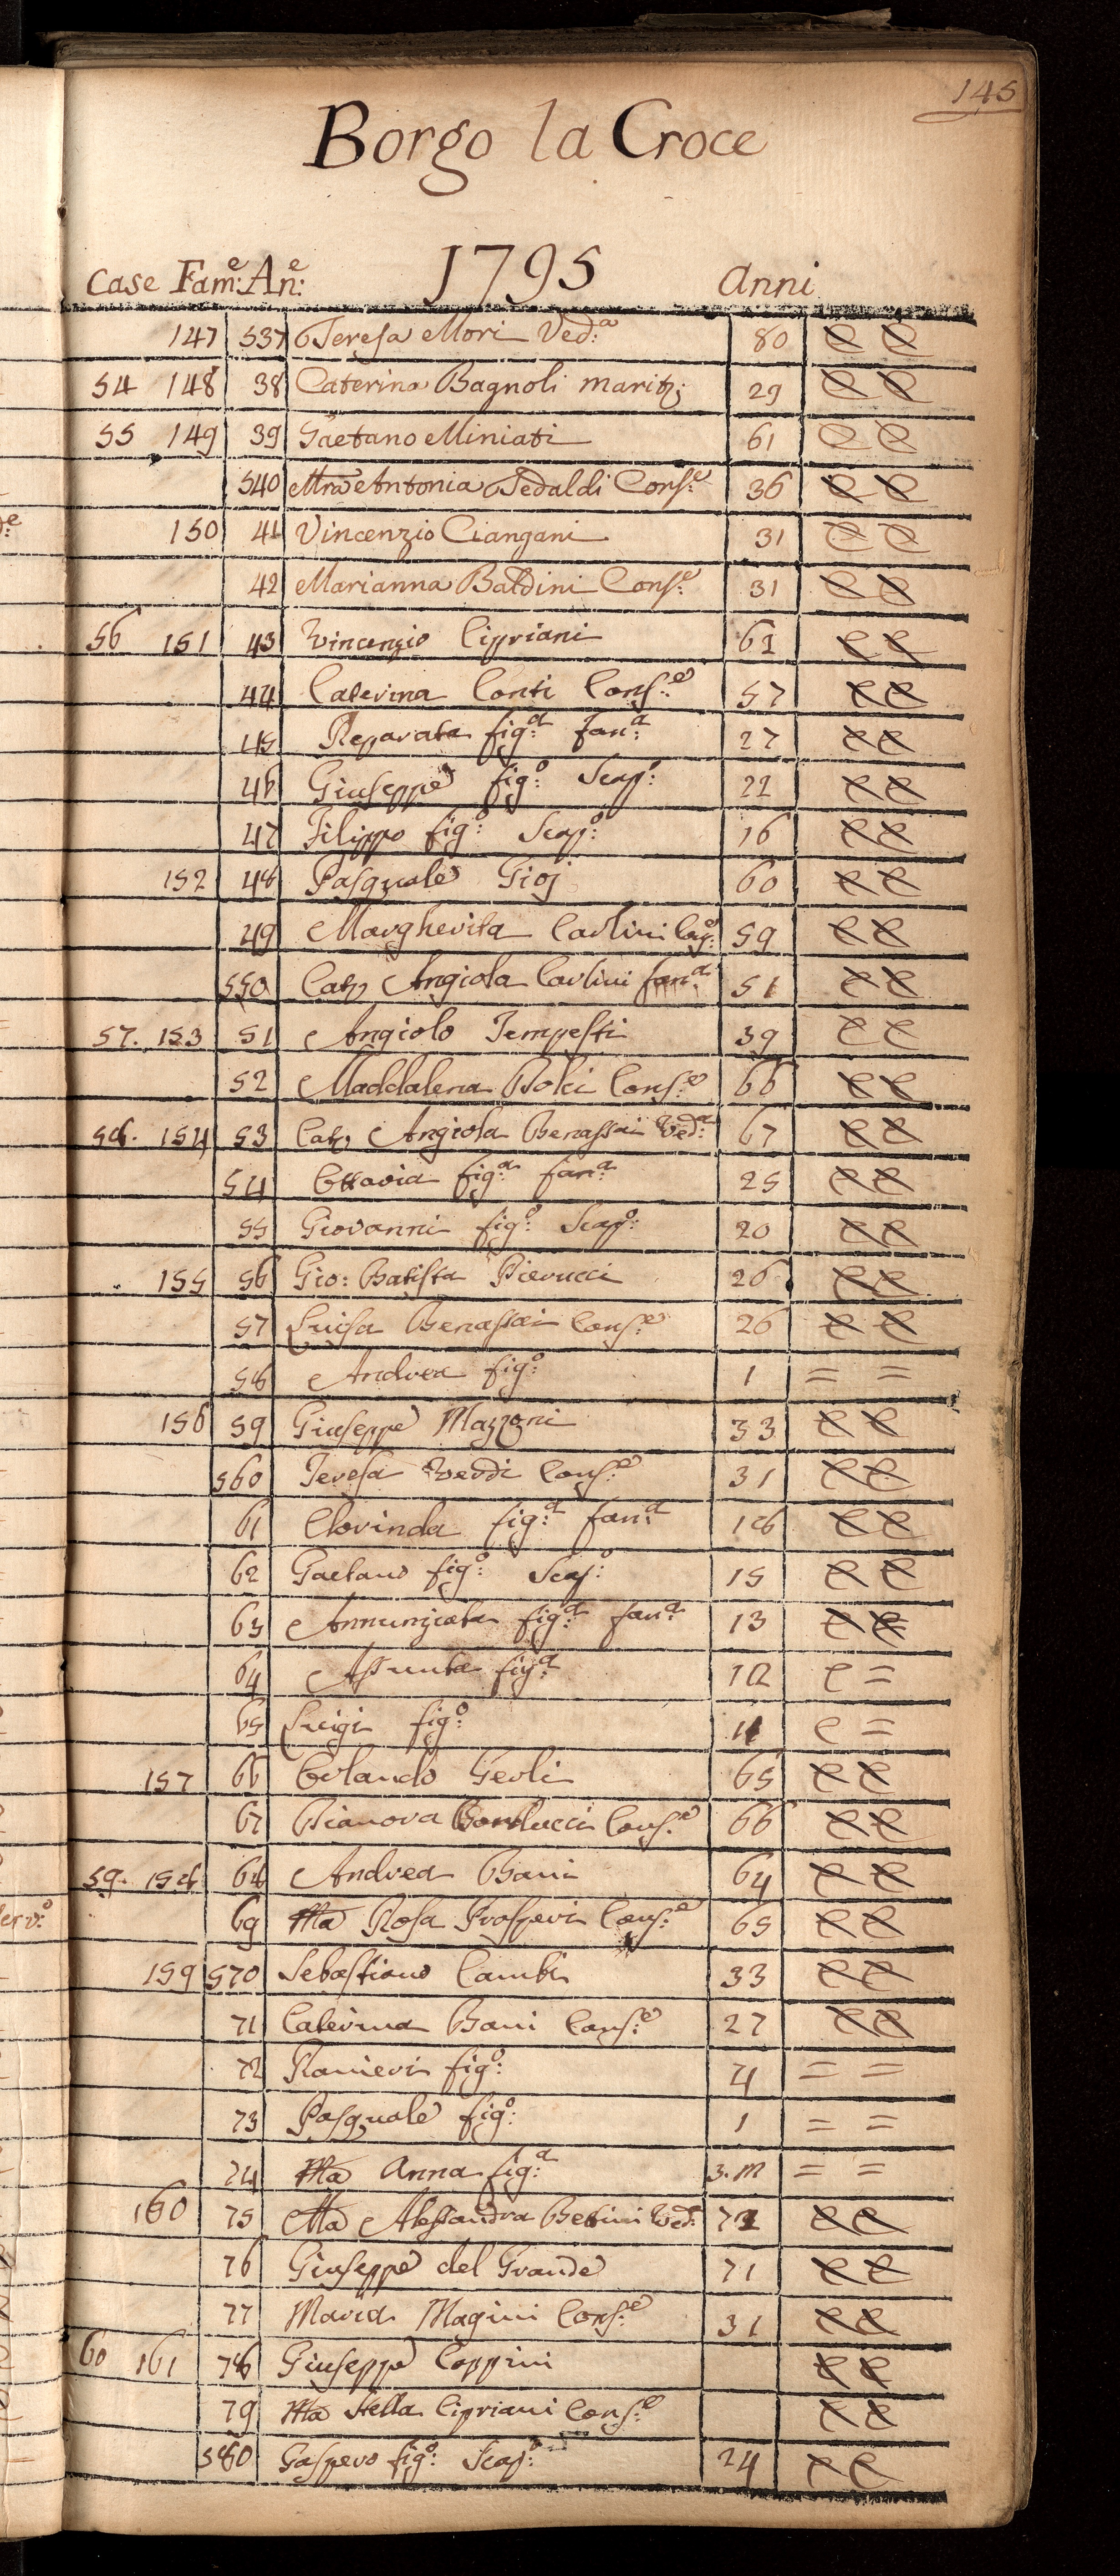 145
Borgo la Croce
1795
Case Fam:e An:e Anni
147 537 Teresa Mori Ved:a 80 C C
54 148 38 Caterina Bagnoli marit: 29 C C
55 149 39 Gaetano Miniati 61 C C
540 Mra Antonia Tedaldi Cons:e 36 C C
150 41 Vincenzio Ciangani 31 C C
42 Marianna Baldini Cons:e 31 C C
56 151 43 Vincenzio Cipriani 61 C C
44 Caterina Conti Cons:e 57 C C
45 Reparata fig:a fan:a 27 C C
46 Giuseppe fig:o Scap:o 22 C C
47 Filippo fig:o Scap:o 16 C C
152 48 Pasquale Gioj 60 C C
49 Margherita Carlini Cons:e 59 C C
550 Cat: Angiola Carlini fan:a 51 C C
57. 153 51 Angiolo Tempesti 39 C C
52 Maddalena Cons:e 66 C C
58. 154 53 Cat: Angiola Benassai Ved:a 67 C C
54 Ottavia fig:a fan:a 25 C C
55 Giovanni fig:o Scap:o 20 C C
155 56 Gio: Batista Pierucci 26 C C
57 Luisa Benassai Cons:e 26 C C
58 Andrea fig:o 1 = =
156 59 Giuseppe Mazzoni 33 C C
560 Teresa Verdi Cons:e 31 C C
61 Clorinda fig:a fan:a 18 C C
62 Gaetano fig:o Scap:o 15 C C
63 Annunziata fig:a fan:a 13 C C
64 Assunta fig:a 12 C =
65 Luigi fig:o 11 C =
157 66 Orlando Gerli 65 C C
67 Bianova Cons:e 66 C C
59. 158 68 Andrea Bani 64 C C
69 Ma Rosa Prosperi Cons:e 65 C C
159 570 Sebastiano Cambi 33 C C
71 Caterina Bani Cons:e 27 C C
72 Ranieri fig:o 4 = =
73 Pasquale fig:o 1 = =
74 Ma Anna fig:a 3. m = =
160 75 Ma Alessandra Betini Ved: C C
76 Giuseppe del Grande 71 C C
77 Maria Magini Cons:e 31 C C
60 161 78 Giuseppe Coppini C C
79 Ma Stella Cipriani Cons:e C C
580 Gaspero fig:o Scap:o 24 C C